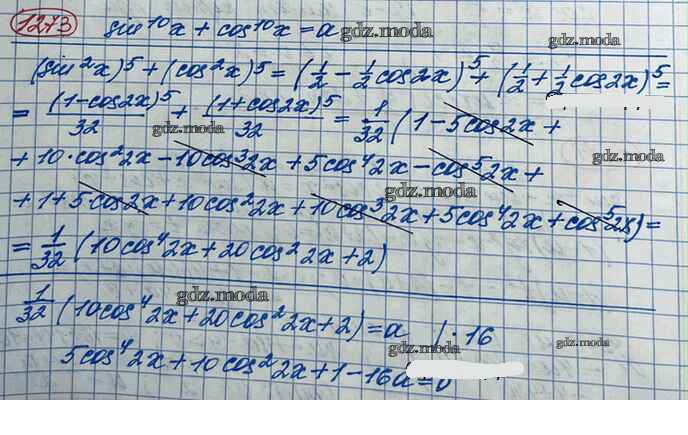 1273 sin¹⁰x + cos¹⁰x = a gdz.moda
(sin²x)⁵ + (cos²x)⁵ = (1/2 - 1/2 cos2x)⁵ + (1/2 + 1/2 cos2x)⁵ =
gdz.moda gdz.moda
= (1-cos2x)⁵/32 + (1+cos2x)⁵/32 = 1/32 (1 - 5cos2x +
gdz.moda gdz.moda
+ 10·cos²2x - 10cos³2x + 5cos⁴2x - cos⁵2x +
gdz.moda gdz.moda
+ 1 + 5cos2x + 10cos²2x + 10cos³2x + 5cos⁴2x + cos⁵2x) =
gdz.moda
= 1/32 (10cos⁴2x + 20cos²2x + 2)
gdz.moda
1/32 (10cos⁴2x + 20cos²2x + 2) = a | · 16
gdz.moda gdz.moda
5cos⁴2x + 10cos²2x + 1 - 16a = 0